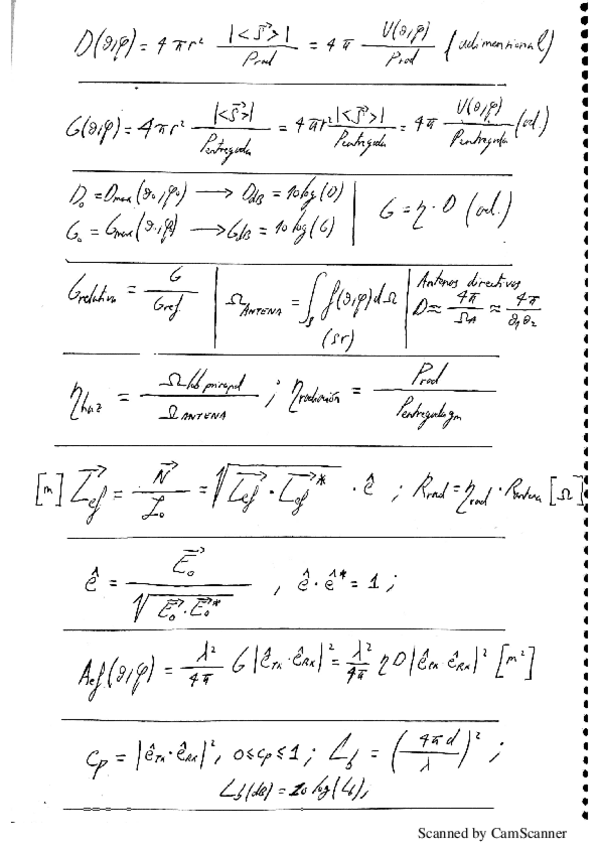 D(θ,φ) = 4πr² |<S⃗>| / Prad = 4π U(θ,φ) / Prad (adimensional)
G(θ,φ) = 4πr² |<S⃗>| / Pentregada = 4πr² |<S⃗>| / Pentregada = 4π U(θ,φ) / Pentregada (ad.)
D₀ = Dmax(θ₀,φ₀) → D_dB = 10 log(D) | G = η · D (ad.)
G₀ = Gmax(θ₀,φ₀) → G_dB = 10 log(G)
Grelativa = G / Gref | Ω_ANTENA = ∫_S f(θ,φ)dΩ (sr) | Antenas directivas
D ≈ 4π / Ω_A ≈ 4π / θ₁θ₂
η_haz = Ω lob principal / Ω_ANTENA ; η_radiación = Prad / Pentregada gm
[m] L⃗ef = N⃗ / I₀ = √(L⃗ef · L⃗ef*) · ê ; Rrad = ηrad · Rantena [Ω]
ê = E⃗₀ / √(E⃗₀ · E⃗₀*) , ê · ê* = 1 ;
Aef(θ,φ) = λ² / 4π G |ê_TX · ê_RX|² = λ² / 4π ηD |ê_TX · ê_RX|² [m²]
Cp = |ê_TX · ê_RX|², 0 ≤ Cp ≤ 1 ; L_b = (4πd / λ)² ;
L_b(dB) = 10 log(L_b) ;
Scanned by CamScanner